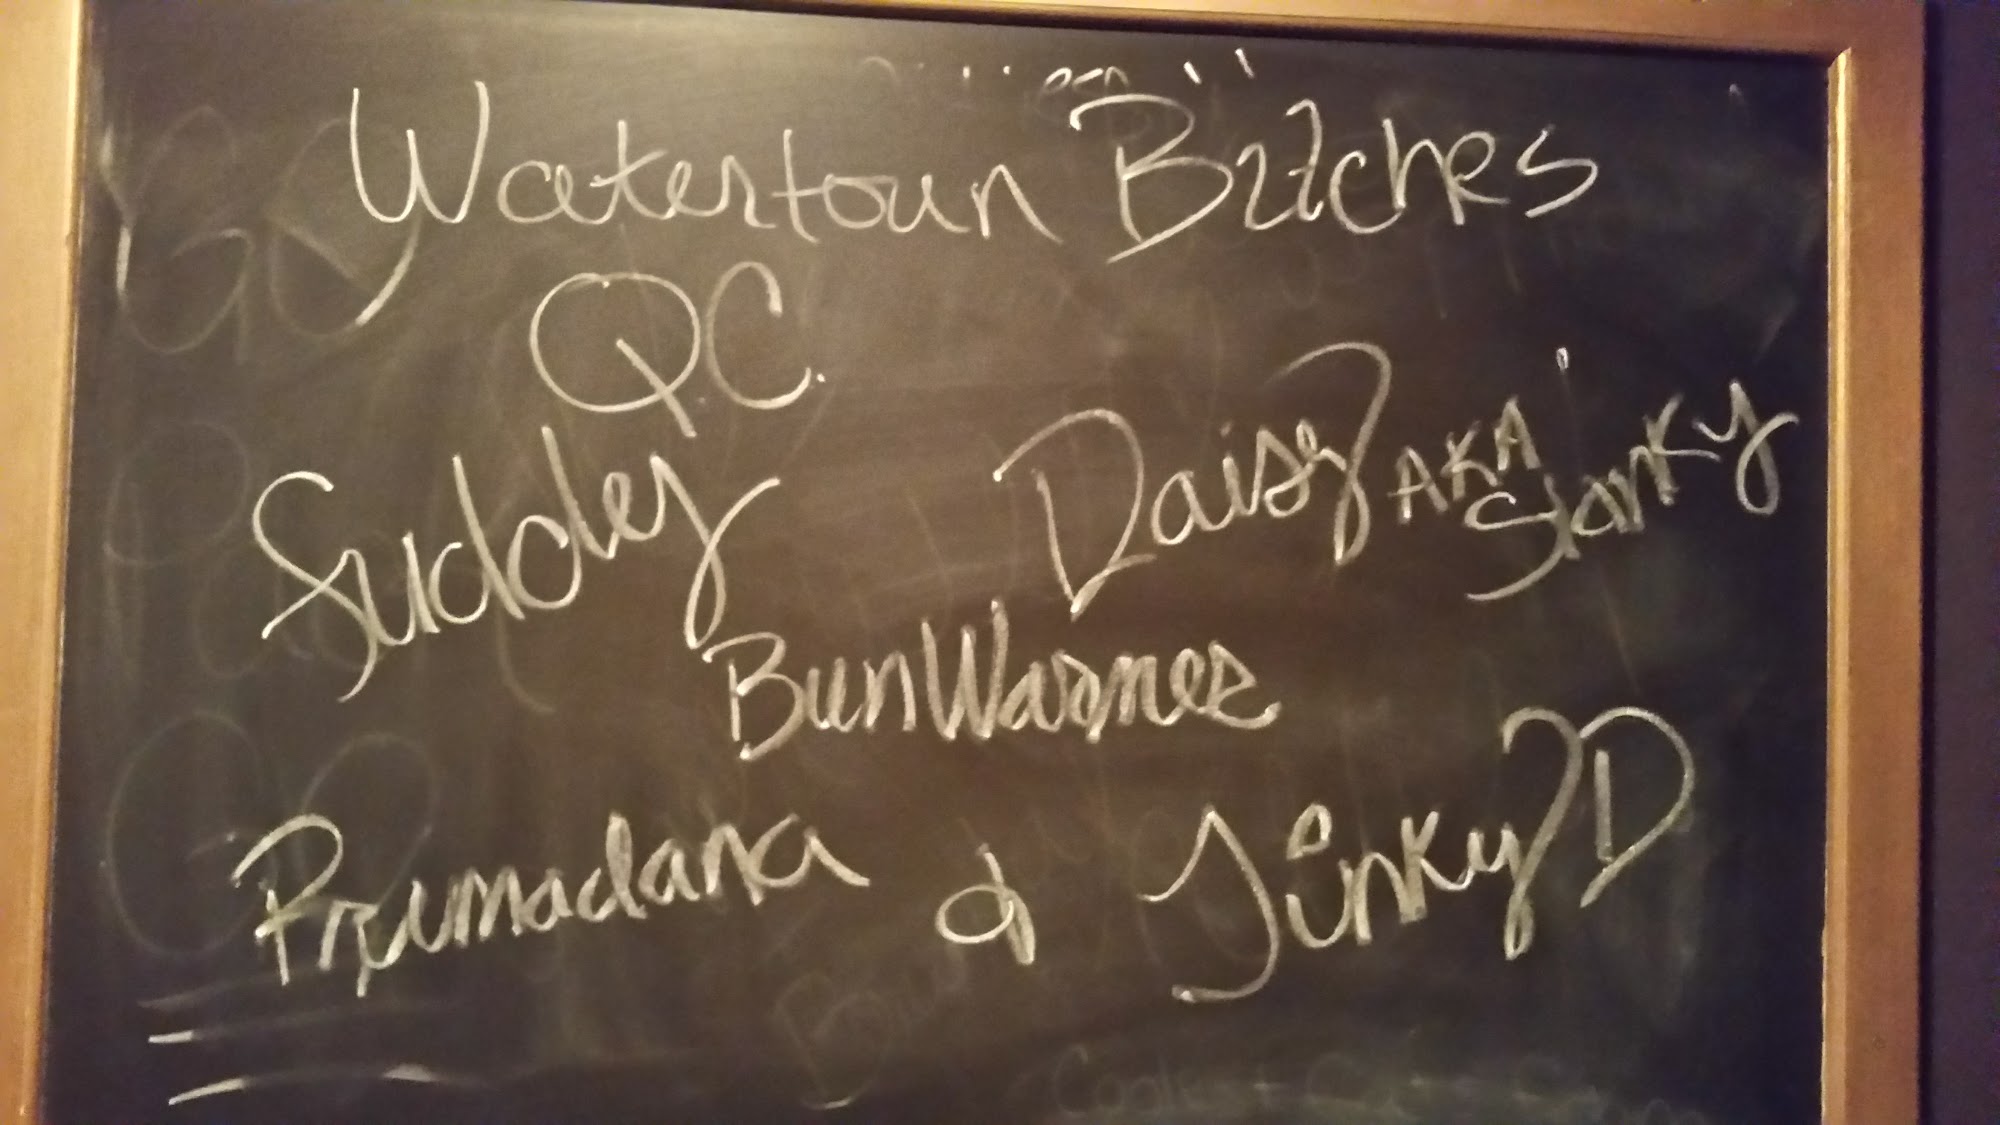 Watertown Bitches
QC
Suddley
Daisy AKA
Stanky
BunWarmer
Primadana & JinkyD